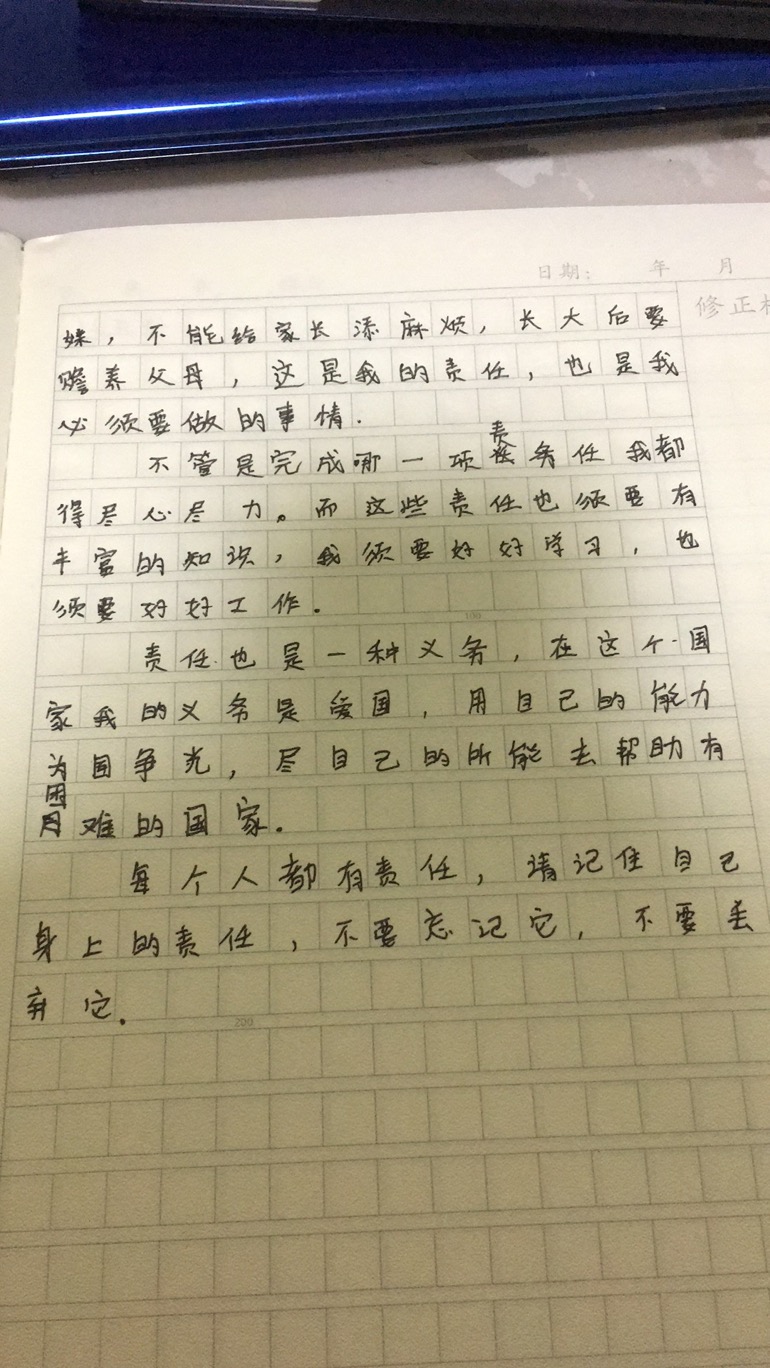 日期： 年 月
修正
妹，不能给家长添麻烦，长大后要
赡养父母，这是我的责任，也是我
必须要做的事情.
责
不管是完成哪一项务任我都
得尽心尽力。而这些责任也须要有
丰富的知识，我须要好好学习，也
须要好好工作。
100
责任也是一种义务，在这个国
家我的义务是爱国，用自己的能力
为国争光，尽自己的所能去帮助有
困
难的国家。
每个人都有责任，请记住自己
身上的责任，不要忘记它，不要丢
弃它.
200